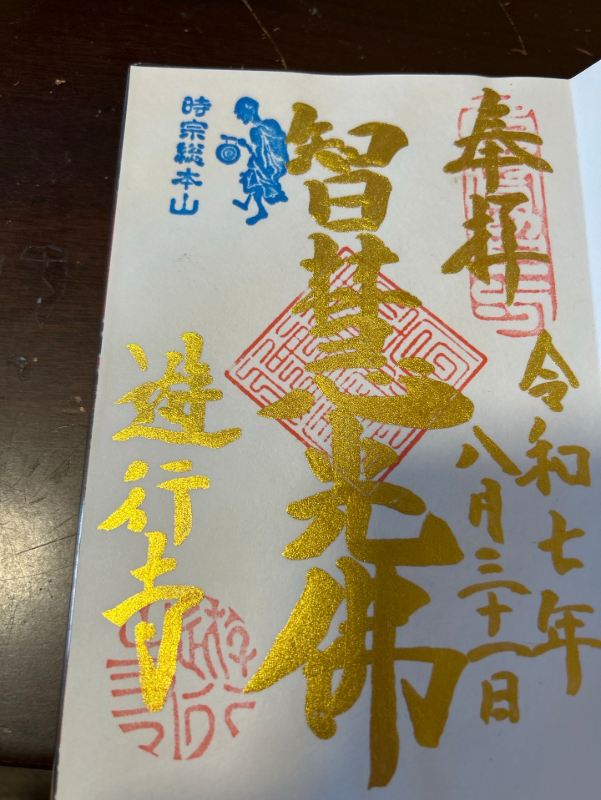 奉拝
令和七年
八月三十一日
智慧光佛
時宗総本山
遊行寺